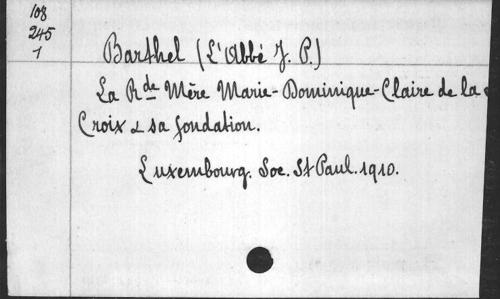 108
245
1
Barthel (L'Abbé J. P.)
La Rde Mère Marie-Dominique-Claire de la
Croix & sa fondation.
Luxembourg. Soc. St Paul. 1910.